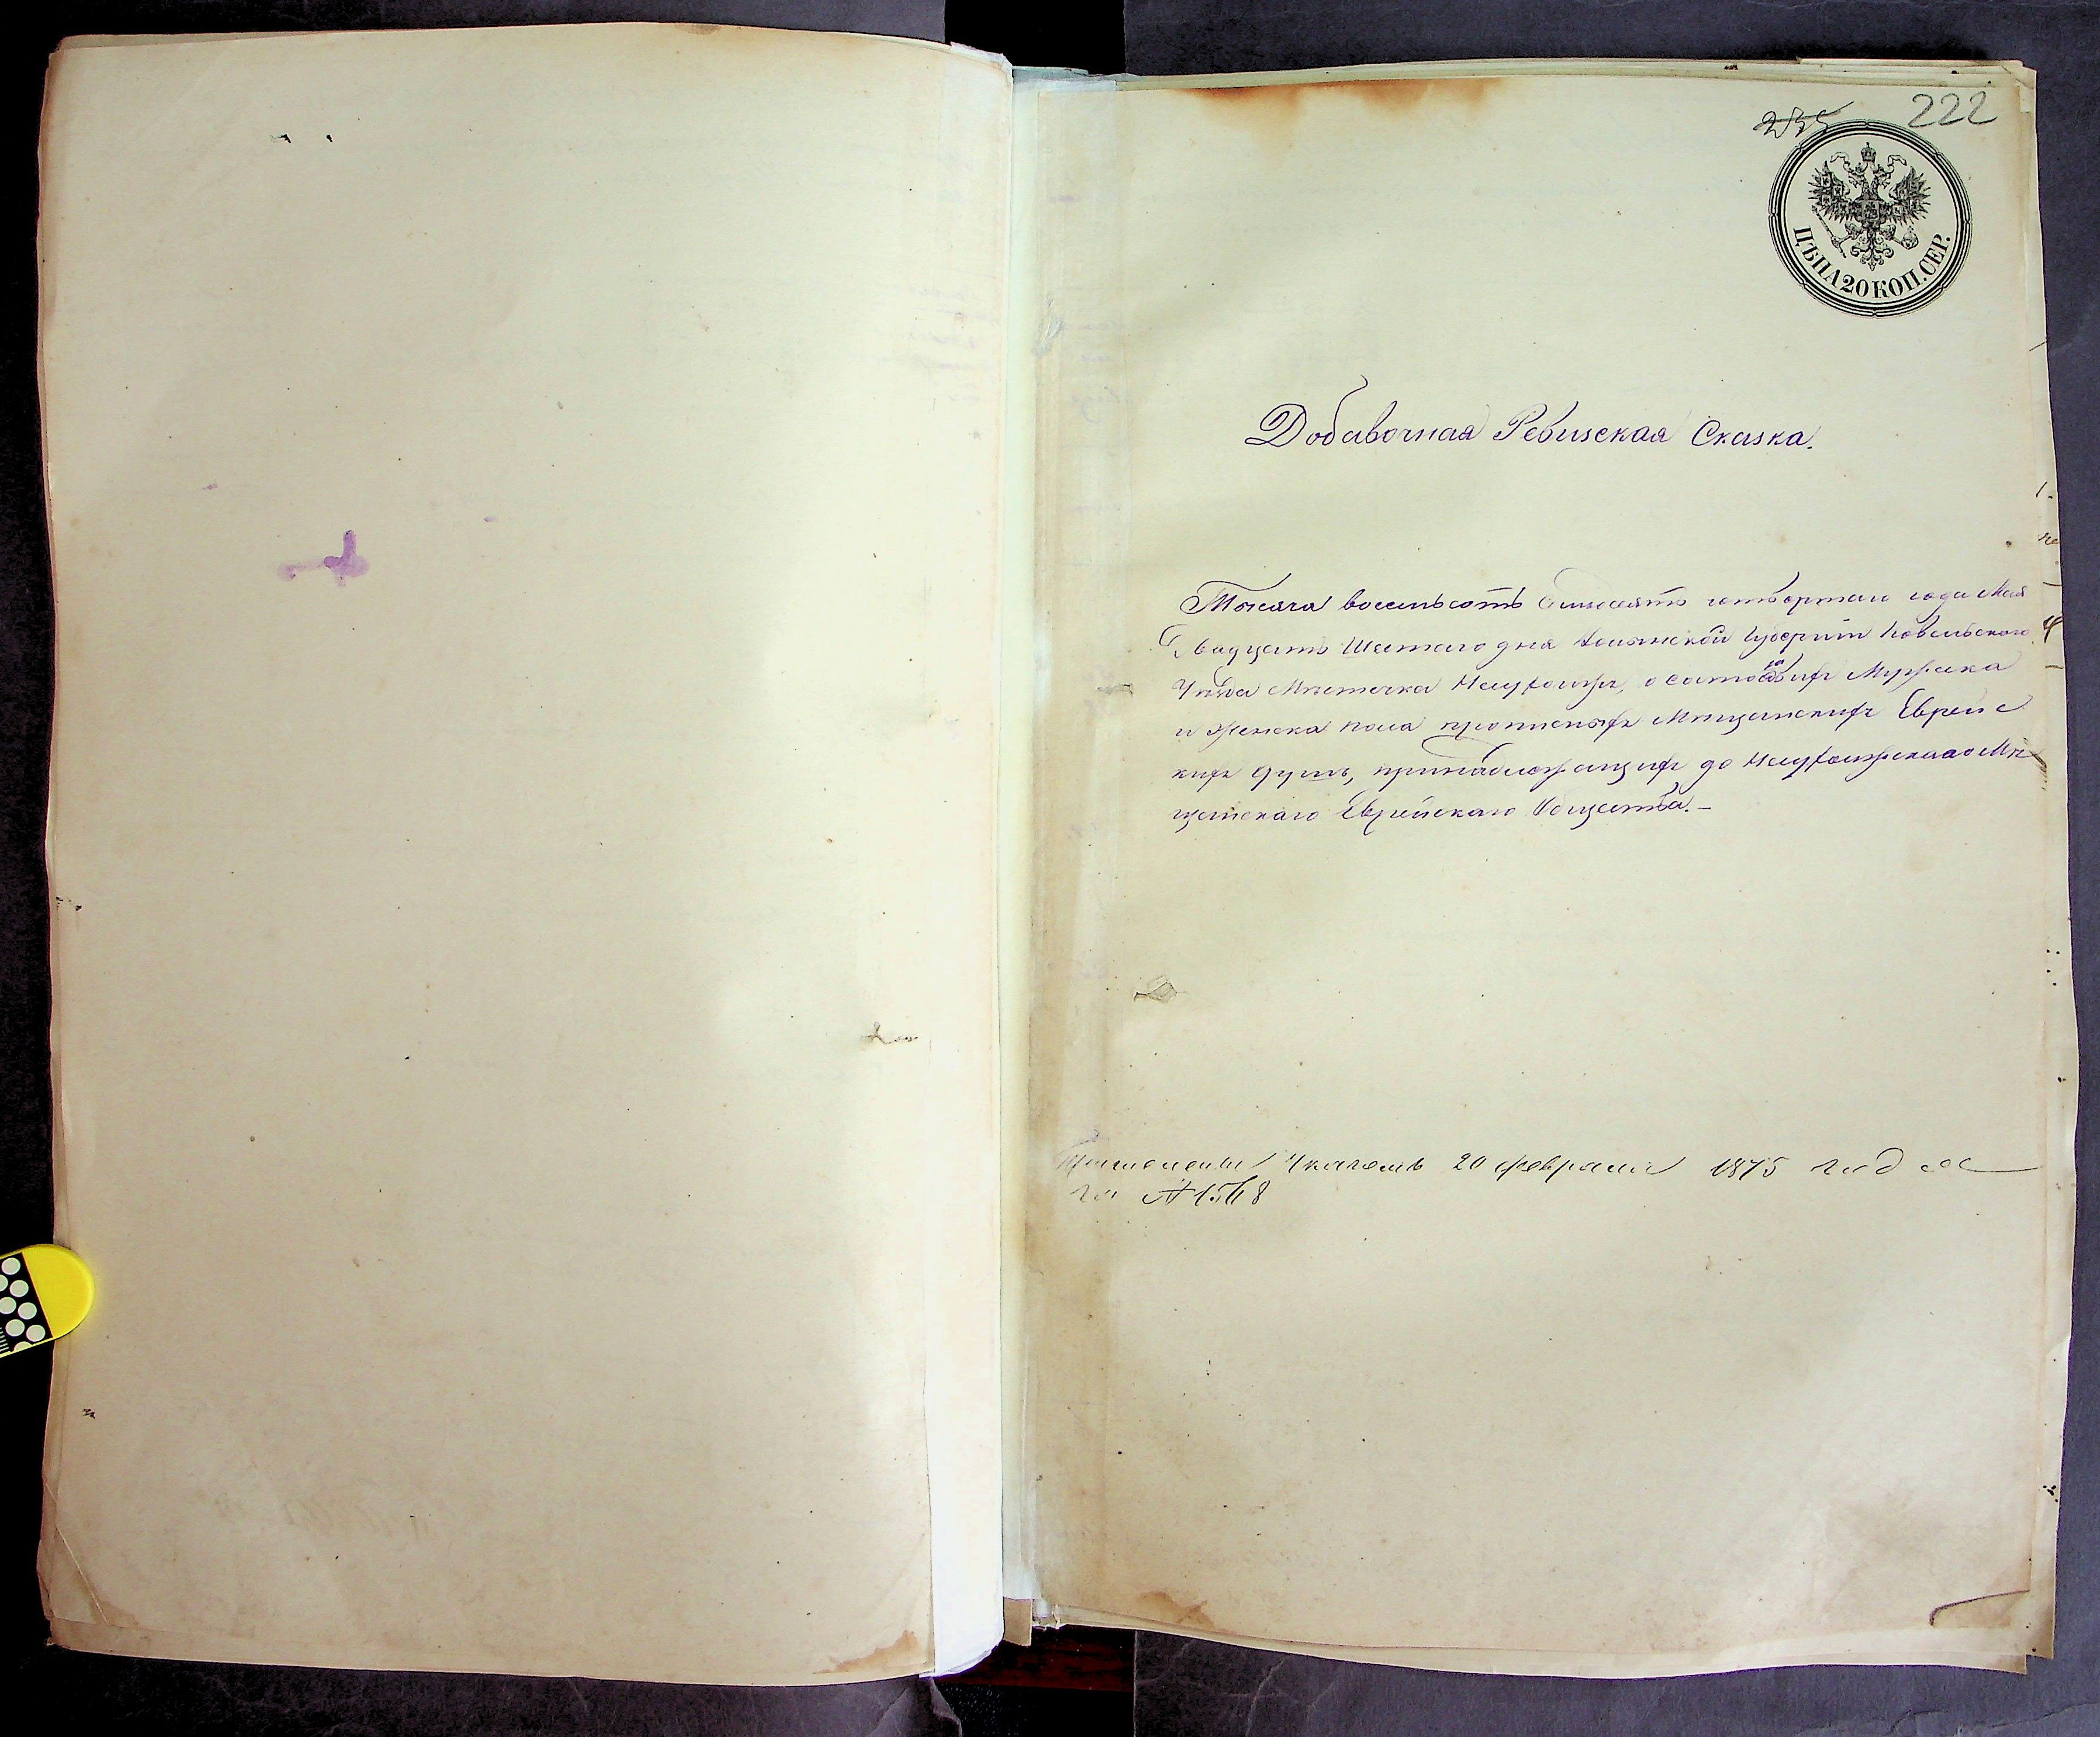 235 222
ЦѢНА 20 КОП. СЕР.
Добавочная Ревизская Сказка.
Тысяча восемьсотъ семьдесятъ четвертаго года Мая
Двадцать Шестаго дня Волынской Губерніи Ковельского
Уѣзда Мѣстечка Несухоижъ, о состоящихъ Мужска
и женска пола мѣщанскихъ Еврейс
кихъ душъ, принадлежащихъ до Несухоижскаго Мѣ
щанскаго Еврейскаго Общества.-
Указомъ 20 февраля 1875 года
за №